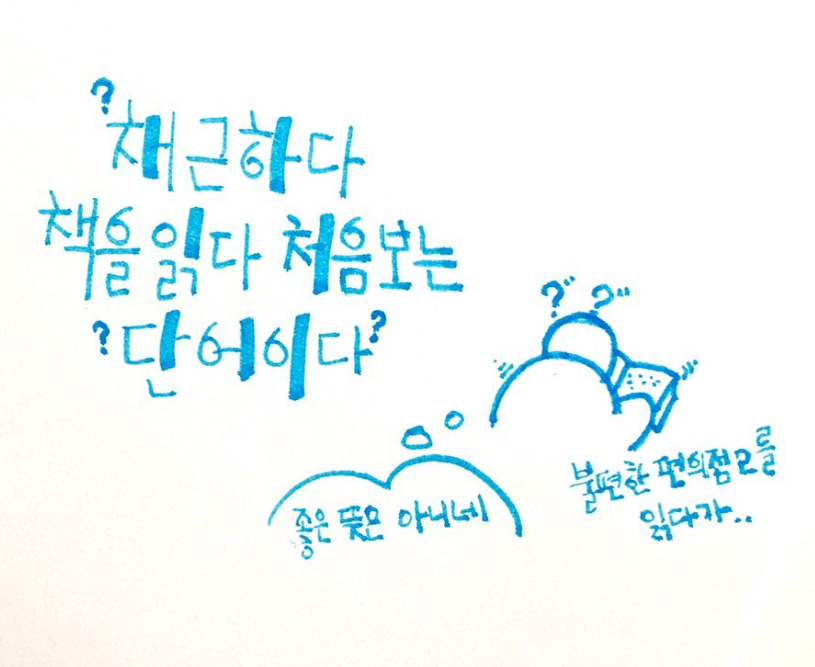 ?
채근하다
책을 읽다 처음보는
? 단어이다 ?
? ?
불편한 편의점2를
읽다가..
좋은 뜻은 아니네